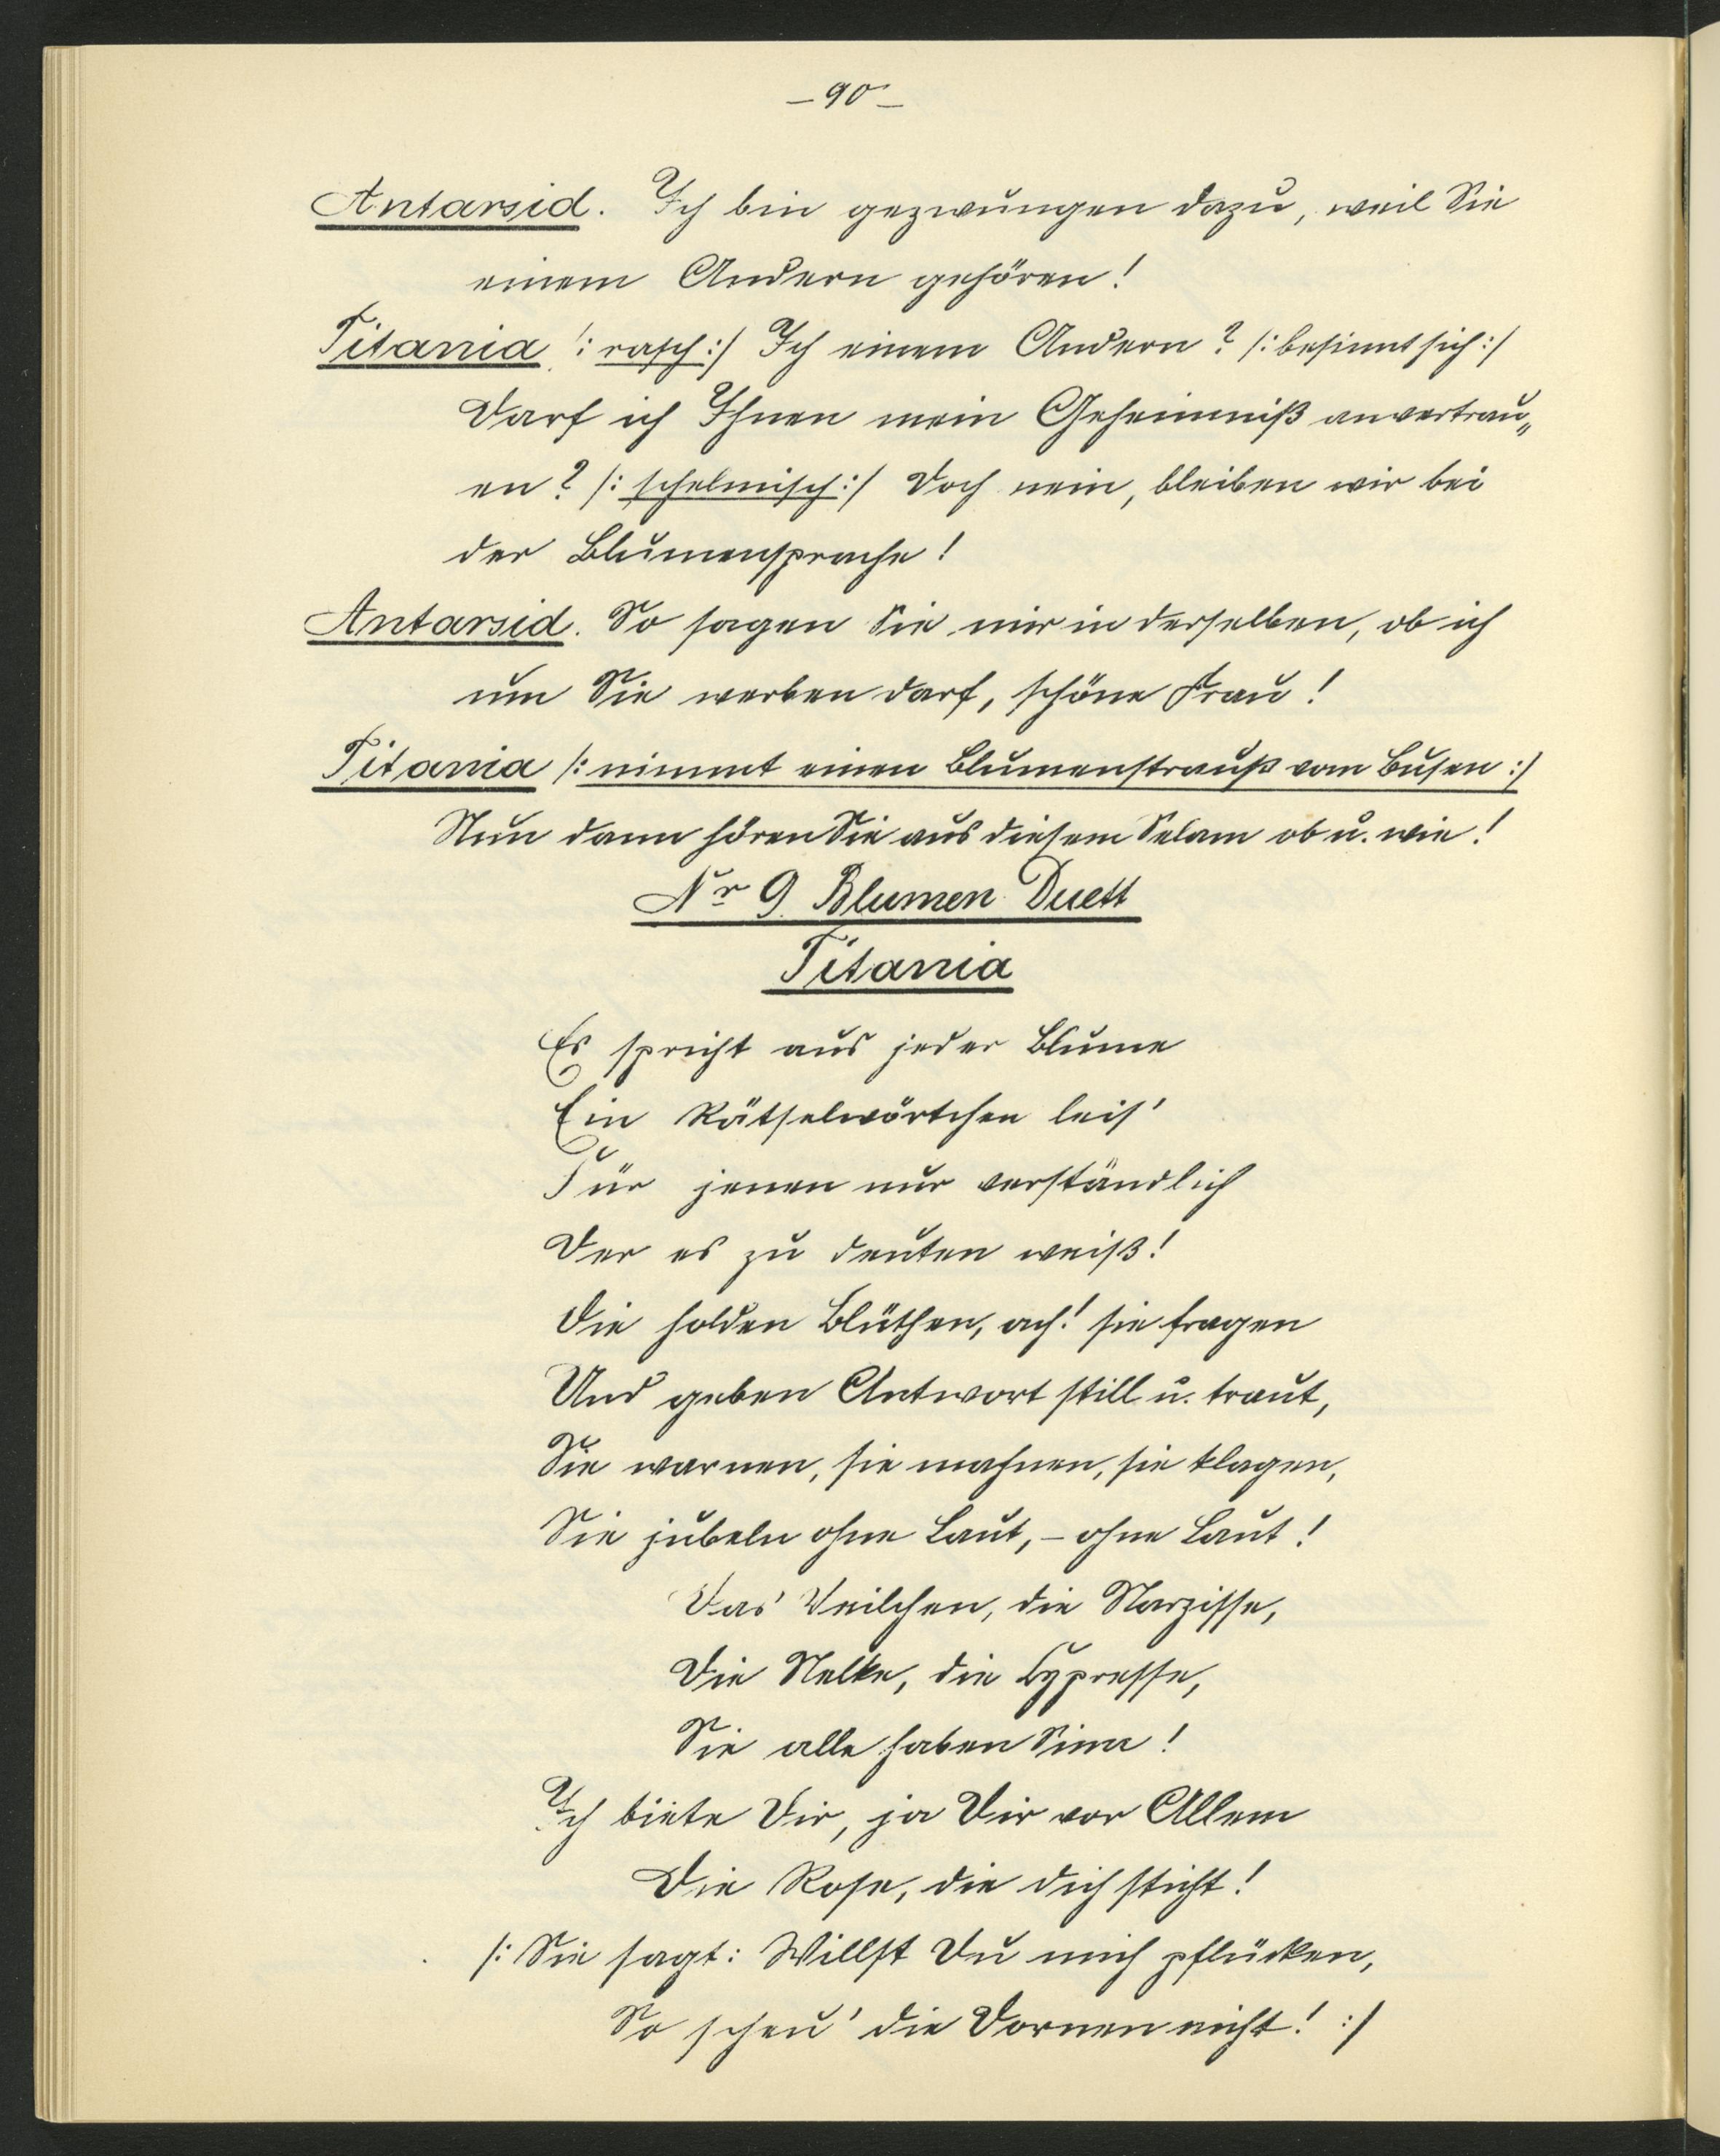 – 90 –
Antarsid. Ich bin gezwungen dazu, weil Sie
einem Andern gehören!
Titania /: rasch :/ Ich einem Andern? /: besinnt sich :/
Darf ich Ihnen mein Geheimniß anvertrau„
en? /: schelmisch :/ Doch nein, bleiben wir bei
der Blumensprache!
Antarsid. So sagen Sie mir in derselben, ob ich
um Sie werben darf, schöne Frau!
Titania /: nimmt einen Blumenstrauß vom Busen :/
Nun dann hören Sie aus diesem Selam ob u. wie!
Nr 9. Blumen Duett
Titania
Es spricht aus jeder Blume
Ein Rätselwörtchen leis'
Für jenen nur verständlich
Der es zu deuten weiß!
Die holden Blüthen, ach! sie fragen
Und geben Antwort still u. traut,
Sie warnen, sie mahnen, sie klagen,
Sie jubeln ohne Laut, – ohne Laut!
Das Veilchen, die Narzisse,
Die Nelke, die Cypresse,
Sie alle haben Sinn!
Ich biete Dir, ja Dir vor Allem
Die Rose, die dich sticht!
/: Sie sagt: Willst Du mich pflücken,
So scheu' die Dornen nicht! :/